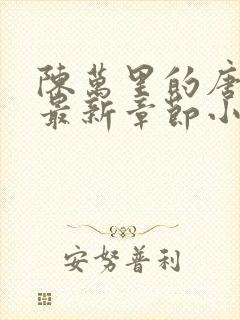 陳萬里的唐
最新章節小
安努普利